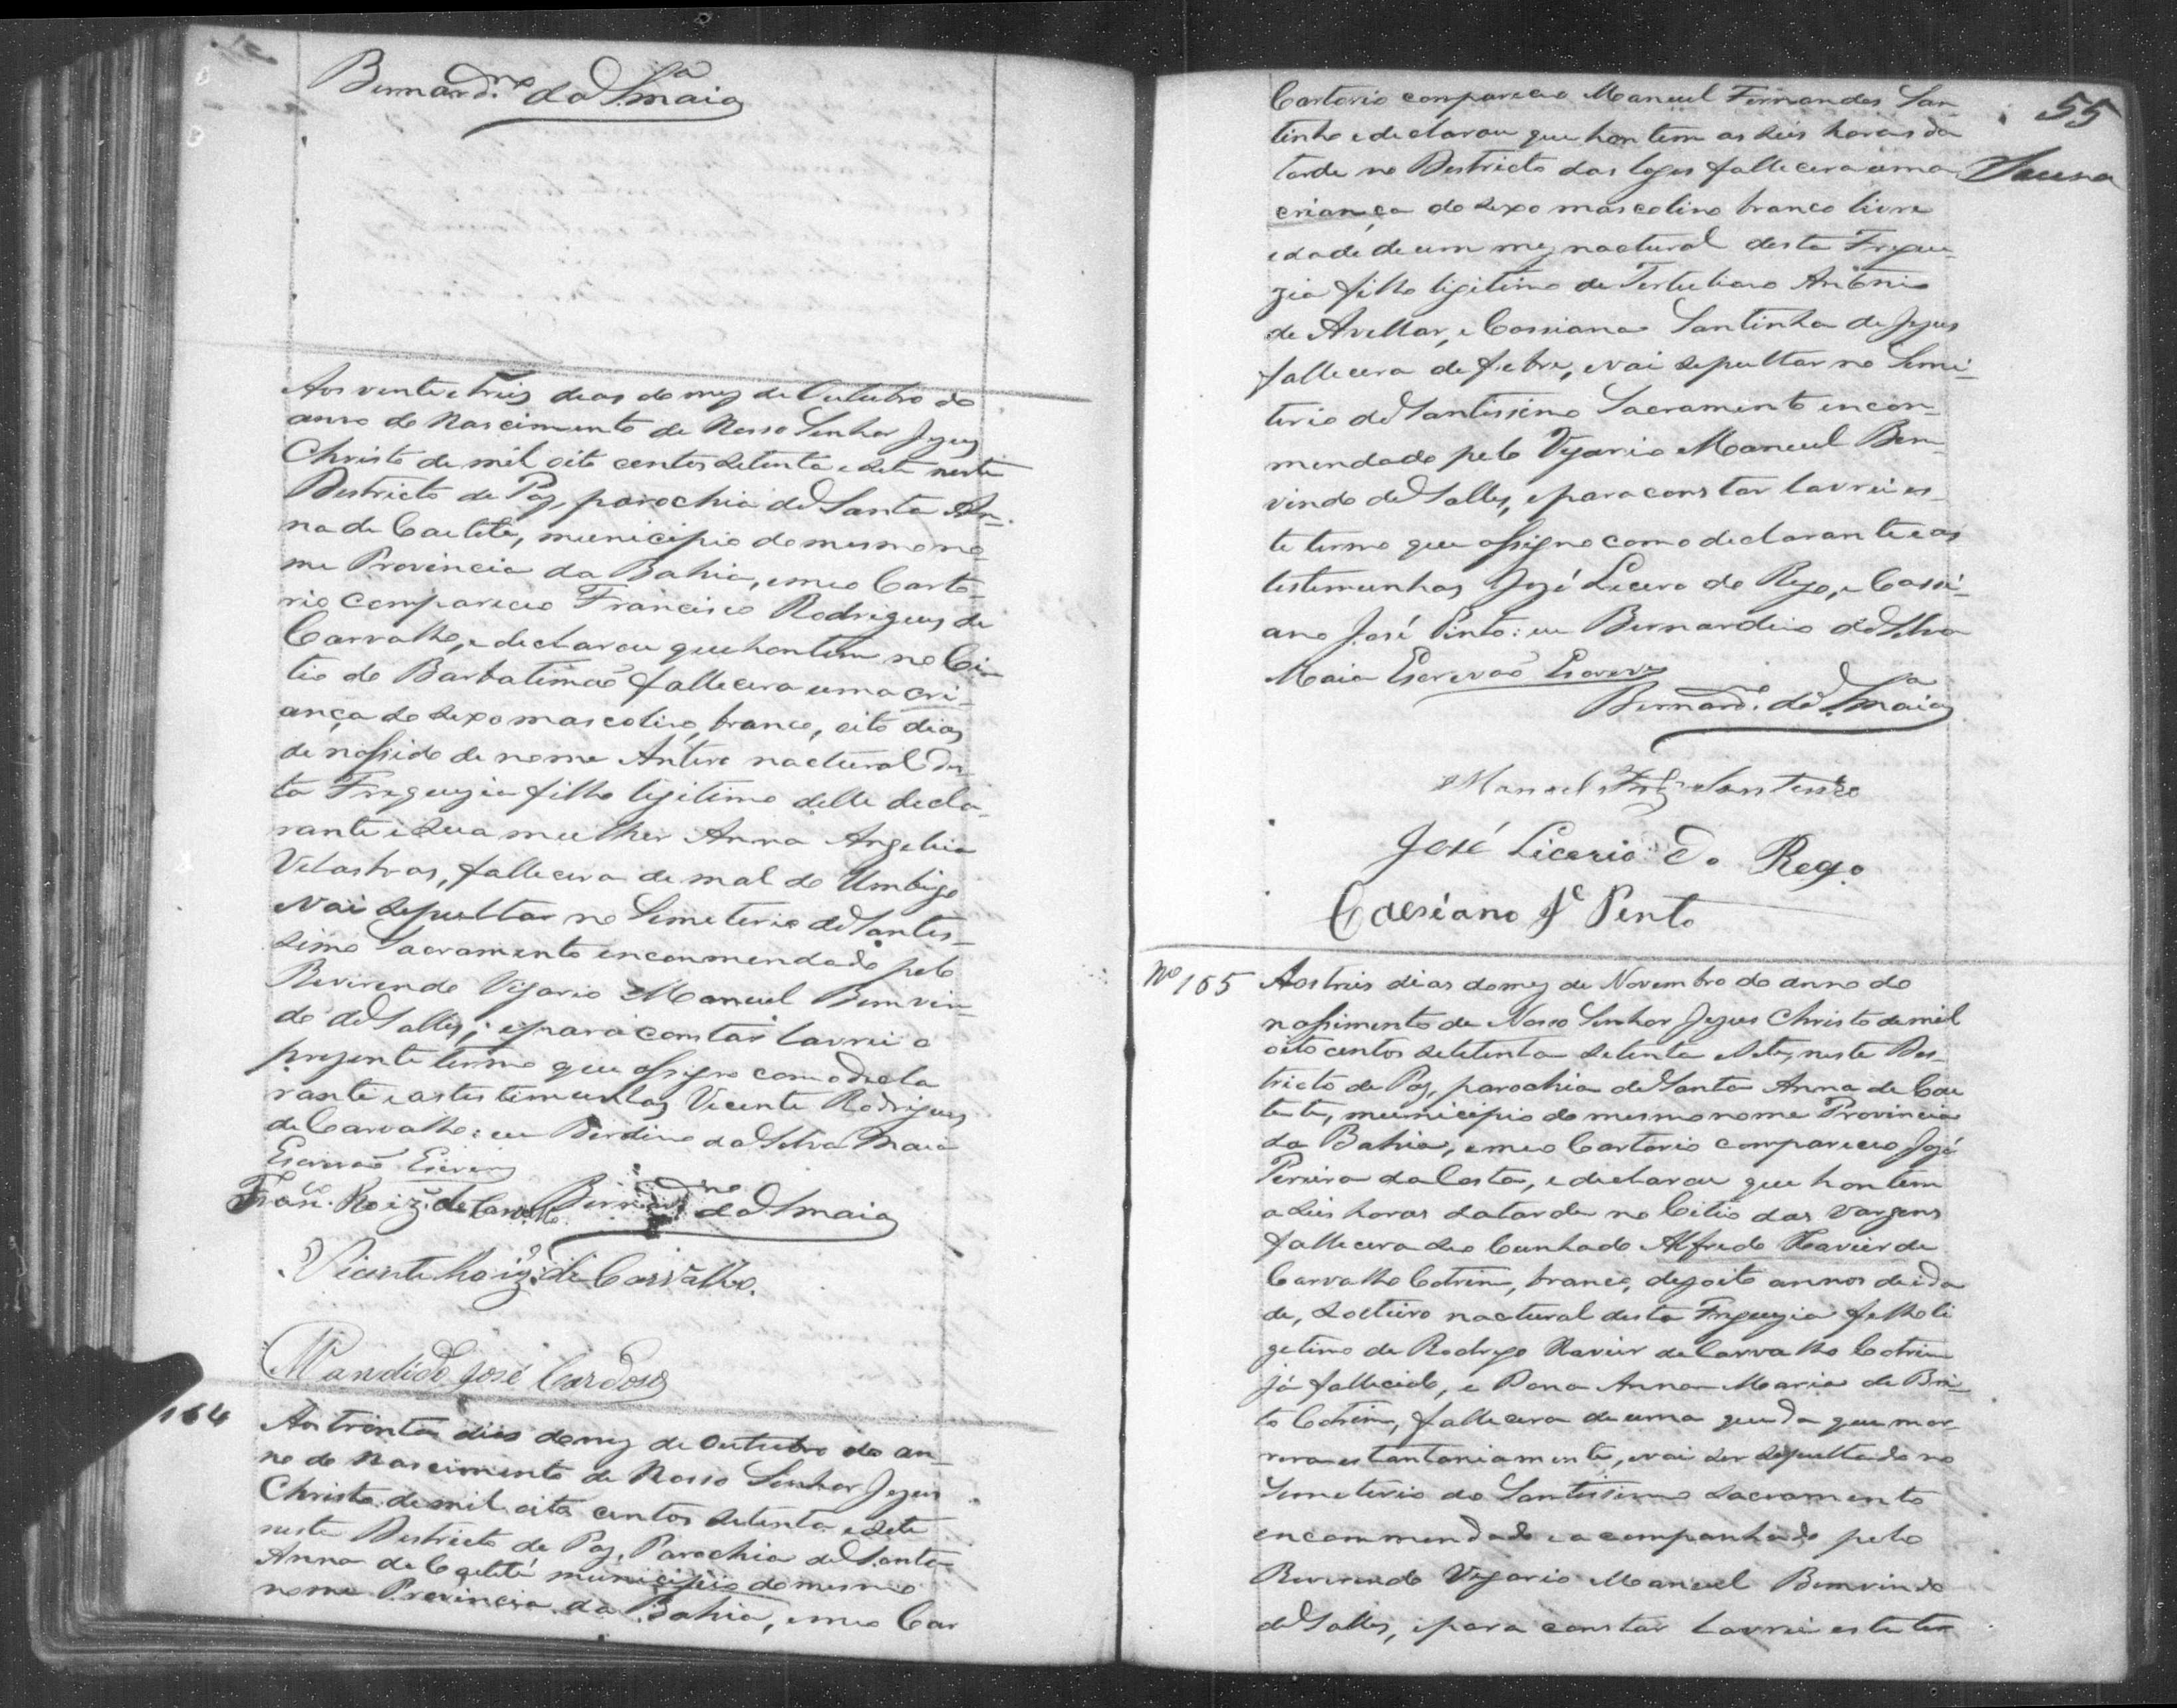 Bernard.no da S.a Maia
Aos vente e treis deas do mez de Outubro do
anno do Nascimento de Nosso Senhor Jezus
Christo de mil oito centos setenta e sete neste
Destricto de Paz, parochia de Santa An-
na de Caeteté, municipio do mesmo no-
me Provincia da Bahia, em meo Carto-
rio compareceo Francisco Rodrigues de
Carvalho, e declarou que hontem no Ci-
tio do Barbatimaõ fallecera uma cri-
ança do sexo mascolino, branco, oito dias
de nassido de nome Antero nactural des-
ta Freguezia filho ligitimo delle decla-
rante e sua mulher Anna Angelica
fallecera de mal do Umbigo
e vai sepultar no Semeterio do Santis-
simo Sacramento encommendado pelo
Reverendo Vigario Manuel Bemvin-
do de Salles; e para constar lavrei o
prezente termo que assigno com o decla
rante e as testemunhas Vicente Rodrigues
de Carvalho: eu Berdino da Silva Maia
Escrivaõ Escrevy
Fran.co Roiz. de Carvalho Bernard.no da S.a Maia
Vicente Roiz. de Carvalho.
Candido José Cardoso
164
Aos trinta dias do mez de Outubro do an-
no do Nascimento de Nosso Senhor Jezus
Christo de mil oito centos setenta e sete
neste Destricto de Paz, Parochia de Santa
Anna de Caeteté municipio do mesmo
nome Provincia da Bahia, em meo Car
55
Cartorio compareceo Manuel Fernandes San
tinho e declarou que hontem as seis horas da
tarde no Destricto das lages fallecera uma
criança do sexo mascolino branco livre
edade de um mez nactural desta Fregue-
zia filho ligitimo de Tertuliano Antonio
de Avellar, e Cassiana Santinha de Jezus
fallecera de febre, e vai sepultar no Semi-
terio do Santissimo Sacramento encom-
mendado pelo Vigario Manuel Bem-
vindo de Salles, e para constar lavrei es-
te termo que assigno com o declarante e as
testemunhas José Licerio do Rego, e Cassi-
ano José Pinto: eu Bernardino da Silva
Maia Escrevaõ Escrevy
Bernard.no da S.a Maia
Manoel Frz Santinho
José Licerio do Rego
Cassiano Je Pento
No 165
Aos treis dias do mez de Novembro do anno do
nassimento de Nosso Senhor Jezus Christo de mil
oito centos setetenta setenta e sete, neste Des-
tricto de Paz, parochia de Santa Anna de Cae
tete, municipio do mesmo nome Provincia
da Bahia, em meo Cartorio compareceo José
Pereira da Costa, e declarou que hontem
a seis horas da tarde no Citio das Vargens
fallecera seo Cunhado Alfredo Xavier de
Carvalho Cotrim, branco, dezoito annos de ida
de, solteiro nactural desta Freguezia filho li
getimo de Rodrigo Xavier de Carvalho Cotrim
já fallecido, e Dona Anna Maria de Bri-
to Cotrim, fallecera de uma queda que mor-
rera estantaniamente, e vai ser sepultado no
Semeterio do Santissimo Sacramento
encommendado e acompanhado pelo
Reverendo Vigario Manuel Bemvindo
de Salles, e para constar lavrei este ter